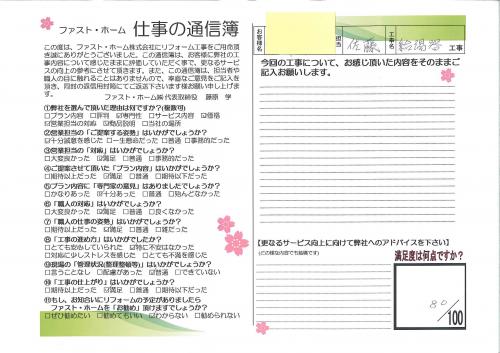 ファスト・ホーム 仕事の通信簿
この度は、ファスト・ホーム株式会社にリフォーム工事をご用命頂き
誠にありがとうございました。この通信簿は、お客様に弊社の工
事内容について感じたままに評価していただく事で、更なるサービ
スの向上の参考にさせて頂きます。また、この通信簿は、担当者や
職人の目に触れることはありませんので、率直なご意見をご記入頂
き、同封の返信用封筒にてご返送下さいます様お願い申し上げま
す。
ファスト・ホーム㈱ 代表取締役 藤原 学
①弊社を選んで頂いた理由は何ですか?(複数可)
□プラン内容 □評判 ☑専門性 □サービス内容 ☑価格
☑営業担当の対応 ☑商品説明 □当社の場所
②営業担当の「ご提案する姿勢」はいかがでしょうか?
☑十分誠意を感じた □一生懸命だった □普通 □事務的だった
③営業担当の「対応」はいかがでしょうか?
□大変良かった ☑満足 □普通 □事務的だった
④ご提案させて頂いた「プラン内容」はいかがでしょうか?
□期待以上だった ☑満足 □普通 □期待以下だった
⑤プラン内容に「専門家の意見」はありましたでしょうか?
□かなりあった ☑十分あった □普通 □殆んどなかった
⑥「職人の対応」はいかがでしょうか?
□大変良かった ☑満足 □普通 □良くなかった
⑦「職人の仕事の姿勢」はいかがでしょうか?
□期待以上だった ☑満足 □普通 □雑だった
⑧「工事の進め方」はいかがでしたか?
□とても安心していられた ☑特に不安はなかった
□対応に少しストレスを感じた □とても不満を感じた
⑨現場の「管理状況(整理整頓等)」はいかがでしょうか?
□言うことなし □配慮があった ☑普通 □できていない
⑩「工事の仕上がり」はいかがでしょうか?
□期待以上だった ☑満足 □普通 □期待以下だった
⑪もし、お知合いにリフォームの予定がありましたら
ファスト・ホームを「お勧め」頂けますでしょうか?
□ぜひ勧めたい □勧めてもいい ☑わからない □勧められない
お客様名
担当 佐藤
工事名 給湯器 工事
今回の工事について、お感じ頂いた内容をそのままご
記入お願いします。
【更なるサービス向上に向けて弊社へのアドバイスを下さい】
(どの様な内容でも結構です)
満足度は何点ですか?
80
/100